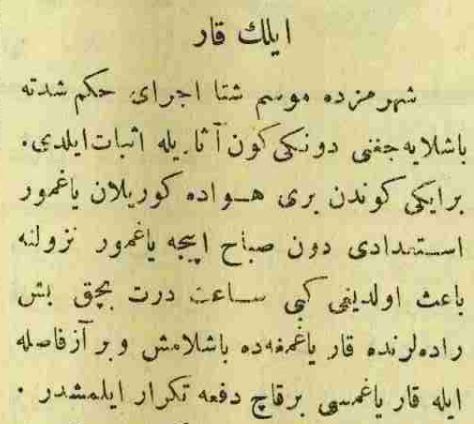 ایلك قار
شهرمزده موسم شتا اجرای حكم شدته
باشلایه‌جغنی دونكی كون آثاریله اثبات ایلدی.
برایكی كوندن بری هواده كوریلان یاغمور
استعدادی دون صباح ایجه یاغمور نزولنه
باعث اولدیغی كبی ساعت درت بچق بش
راده‌لرنده قار یاغمغه‌ده باشلامش وبر آز فاصله
ایله قار یاغمسی برقاچ دفعه تكرار ایلمشدر .